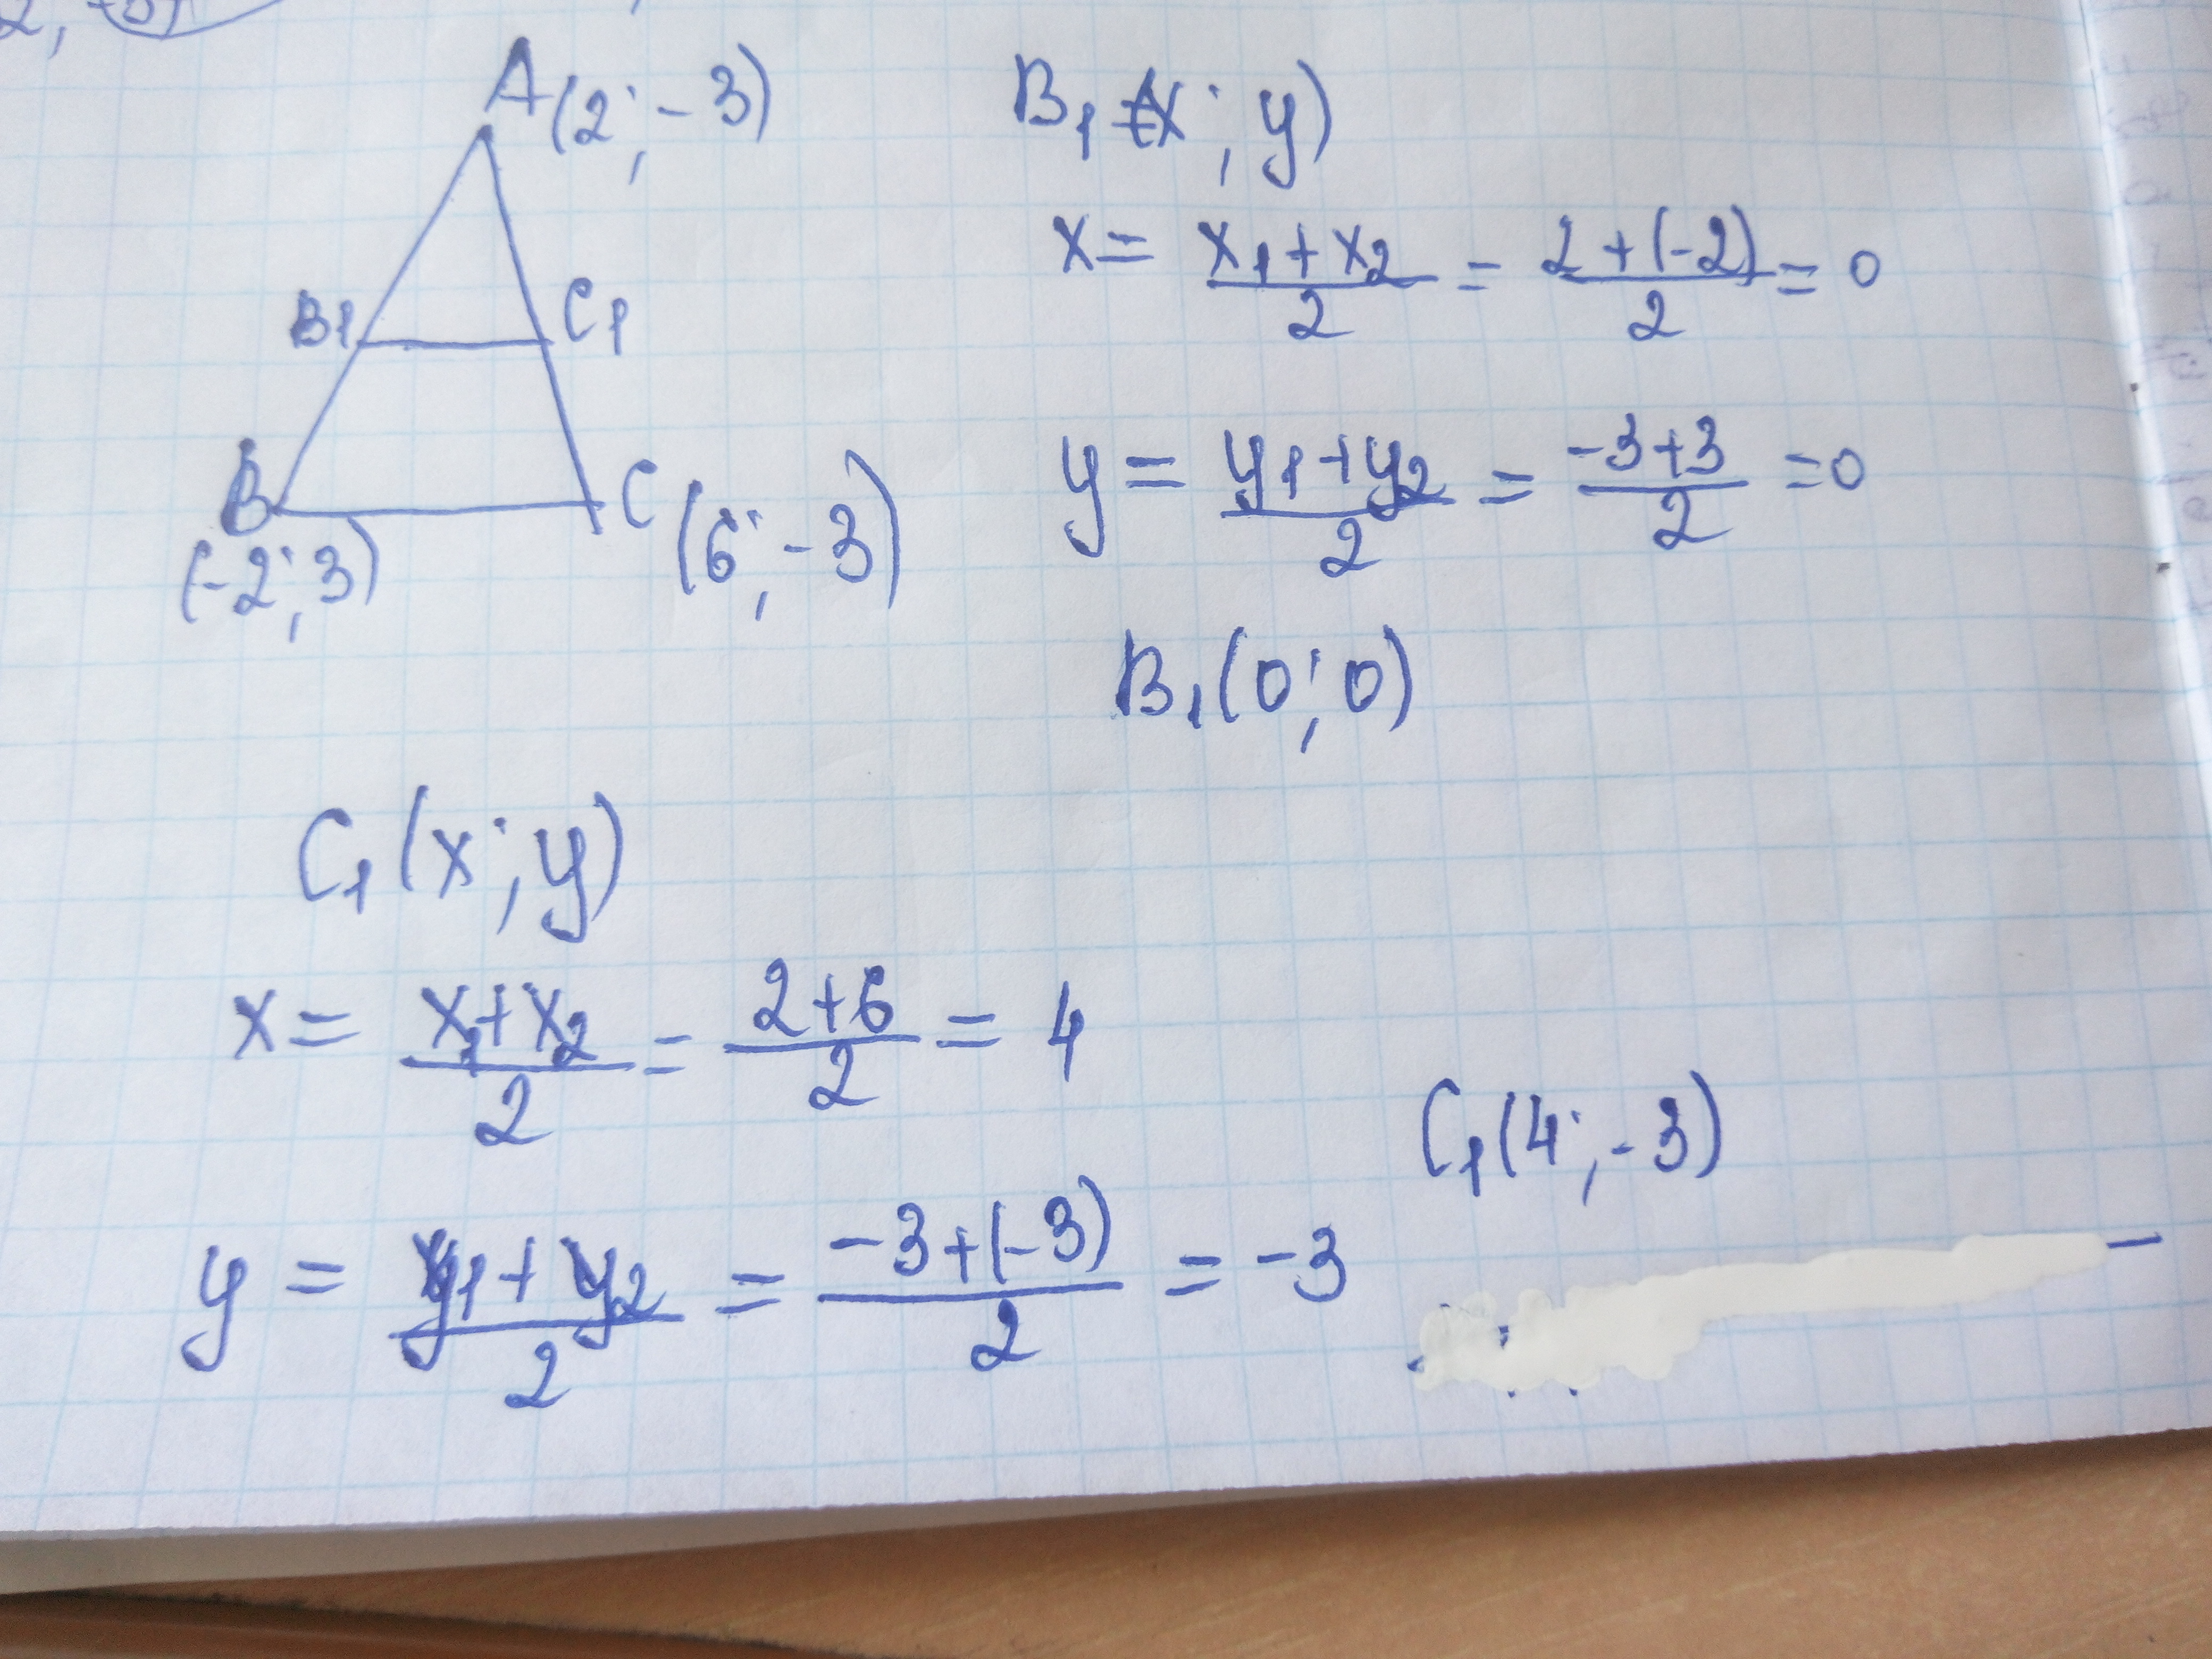 A(2; -3)
B1 C1
B C
(-2; 3) (6; -3)
B1(x; y)
x = (x1 + x2)/2 = (2 + (-2))/2 = 0
y = (y1 + y2)/2 = (-3+3)/2 = 0
B1(0; 0)
C1(x; y)
x = (x1 + x2)/2 = (2+6)/2 = 4
y = (y1 + y2)/2 = (-3+(-3))/2 = -3
C1(4; -3)